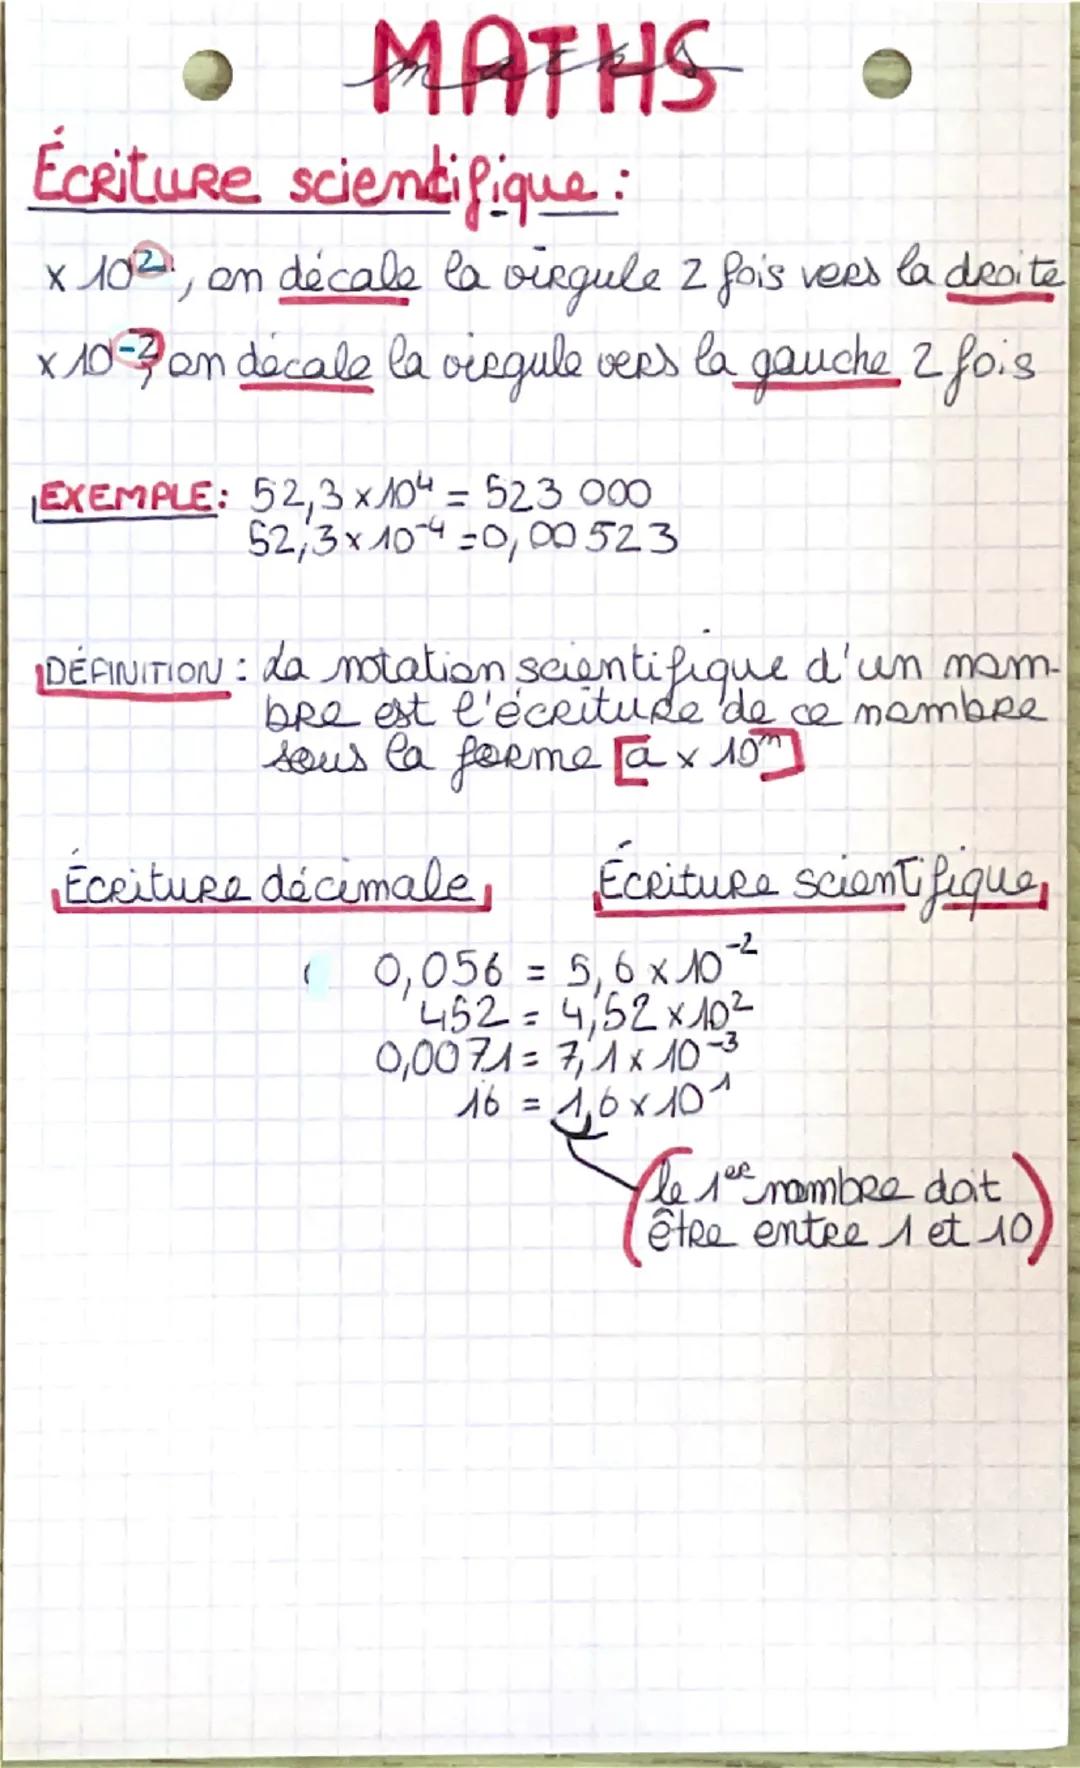 MATHS
maths
Écriture scientifique :
x 10², on décale la virgule 2 fois vers la droite
x 10⁻², on décale la virgule vers la gauche 2 fois
EXEMPLE : 52,3 x 10⁴ = 523 000
52,3 x 10⁻⁴ = 0,00523
DÉFINITION : La notation scientifique d'un nom-
bre est l'écriture de ce nombre
sous la forme [a x 10ⁿ]
Écriture décimale Écriture scientifique
0,056 = 5,6 x 10⁻²
452 = 4,52 x 10²
0,0071 = 7,1 x 10⁻³
16 = 1,6 x 10¹
(le 1er nombre doit
être entre 1 et 10)